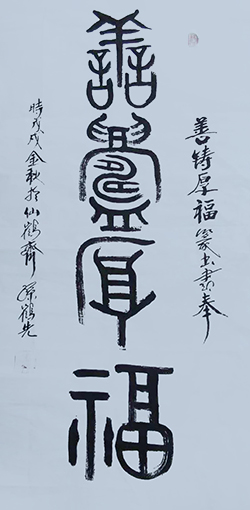 善铸厚福
善铸厚福篆书素奉
時戊戌金秋於仙鶴齋
鶴先